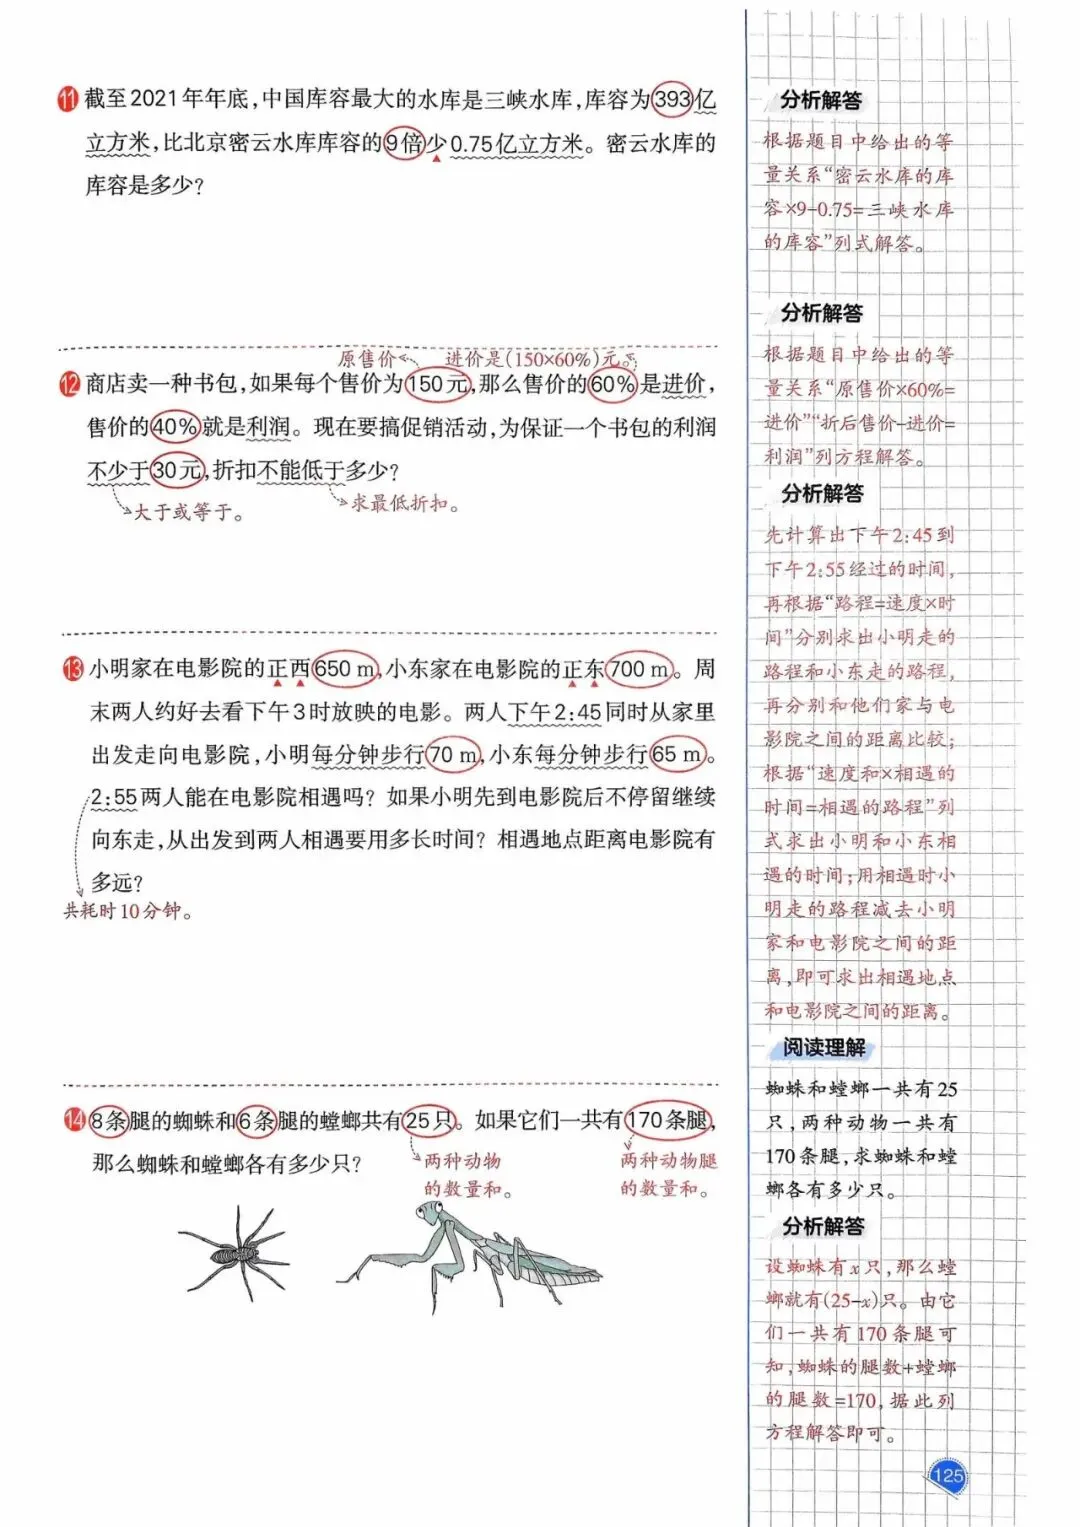 11 截至2021年年底,中国库容最大的水库是三峡水库,库容为393亿
立方米,比北京密云水库库容的9倍少0.75亿立方米。密云水库的
库容是多少?
原售价 进价是(150×60%)元。
12 商店卖一种书包,如果每个售价为150元,那么售价的60%是进价,
售价的40%就是利润。现在要搞促销活动,为保证一个书包的利润
不少于30元,折扣不能低于多少?
大于或等于。 求最低折扣。
13 小明家在电影院的正西650 m,小东家在电影院的正东700 m。周
末两人约好去看下午3时放映的电影。两人下午2:45同时从家里
出发走向电影院,小明每分钟步行70 m,小东每分钟步行65 m。
2:55两人能在电影院相遇吗?如果小明先到电影院后不停留继续
向东走,从出发到两人相遇要用多长时间?相遇地点距离电影院有
多远?
共耗时10分钟。
14 8条腿的蜘蛛和6条腿的螳螂共有25只。如果它们一共有170条腿,
那么蜘蛛和螳螂各有多少只?
两种动物
的数量和。
两种动物腿
的数量和。
分析解答
根据题目中给出的等
量关系“密云水库的库
容×9-0.75=三峡水库
的库容”列式解答。
分析解答
根据题目中给出的等
量关系“原售价×60%=
进价”“折后售价-进价=
利润”列方程解答。
分析解答
先计算出下午2:45到
下午2:55经过的时间,
再根据“路程=速度×时
间”分别求出小明走的
路程和小东走的路程,
再分别和他们家与电
影院之间的距离比较;
根据“速度和×相遇的
时间=相遇的路程”列
式求出小明和小东相
遇的时间;用相遇时小
明走的路程减去小明
家和电影院之间的距
离,即可求出相遇地点
和电影院之间的距离。
阅读理解
蜘蛛和螳螂一共有25
只,两种动物一共有
170条腿,求蜘蛛和螳
螂各有多少只。
分析解答
设蜘蛛有x只,那么螳
螂就有(25-x)只。由它
们一共有170条腿可
知,蜘蛛的腿数+螳螂
的腿数=170,据此列
方程解答即可。
125